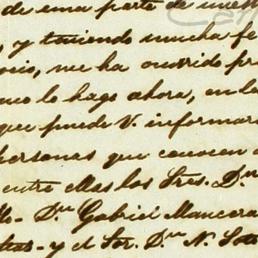 de una parte de nuest
, y teniendo mucha fe
ocio, me ha ocurrido pr
mo lo hago ahora, en la
que puede V. informar
personas que conocen
entre ellas los Sres. Dn.
Dn. Gabriel Mancera
y el Sor. Dn. N.